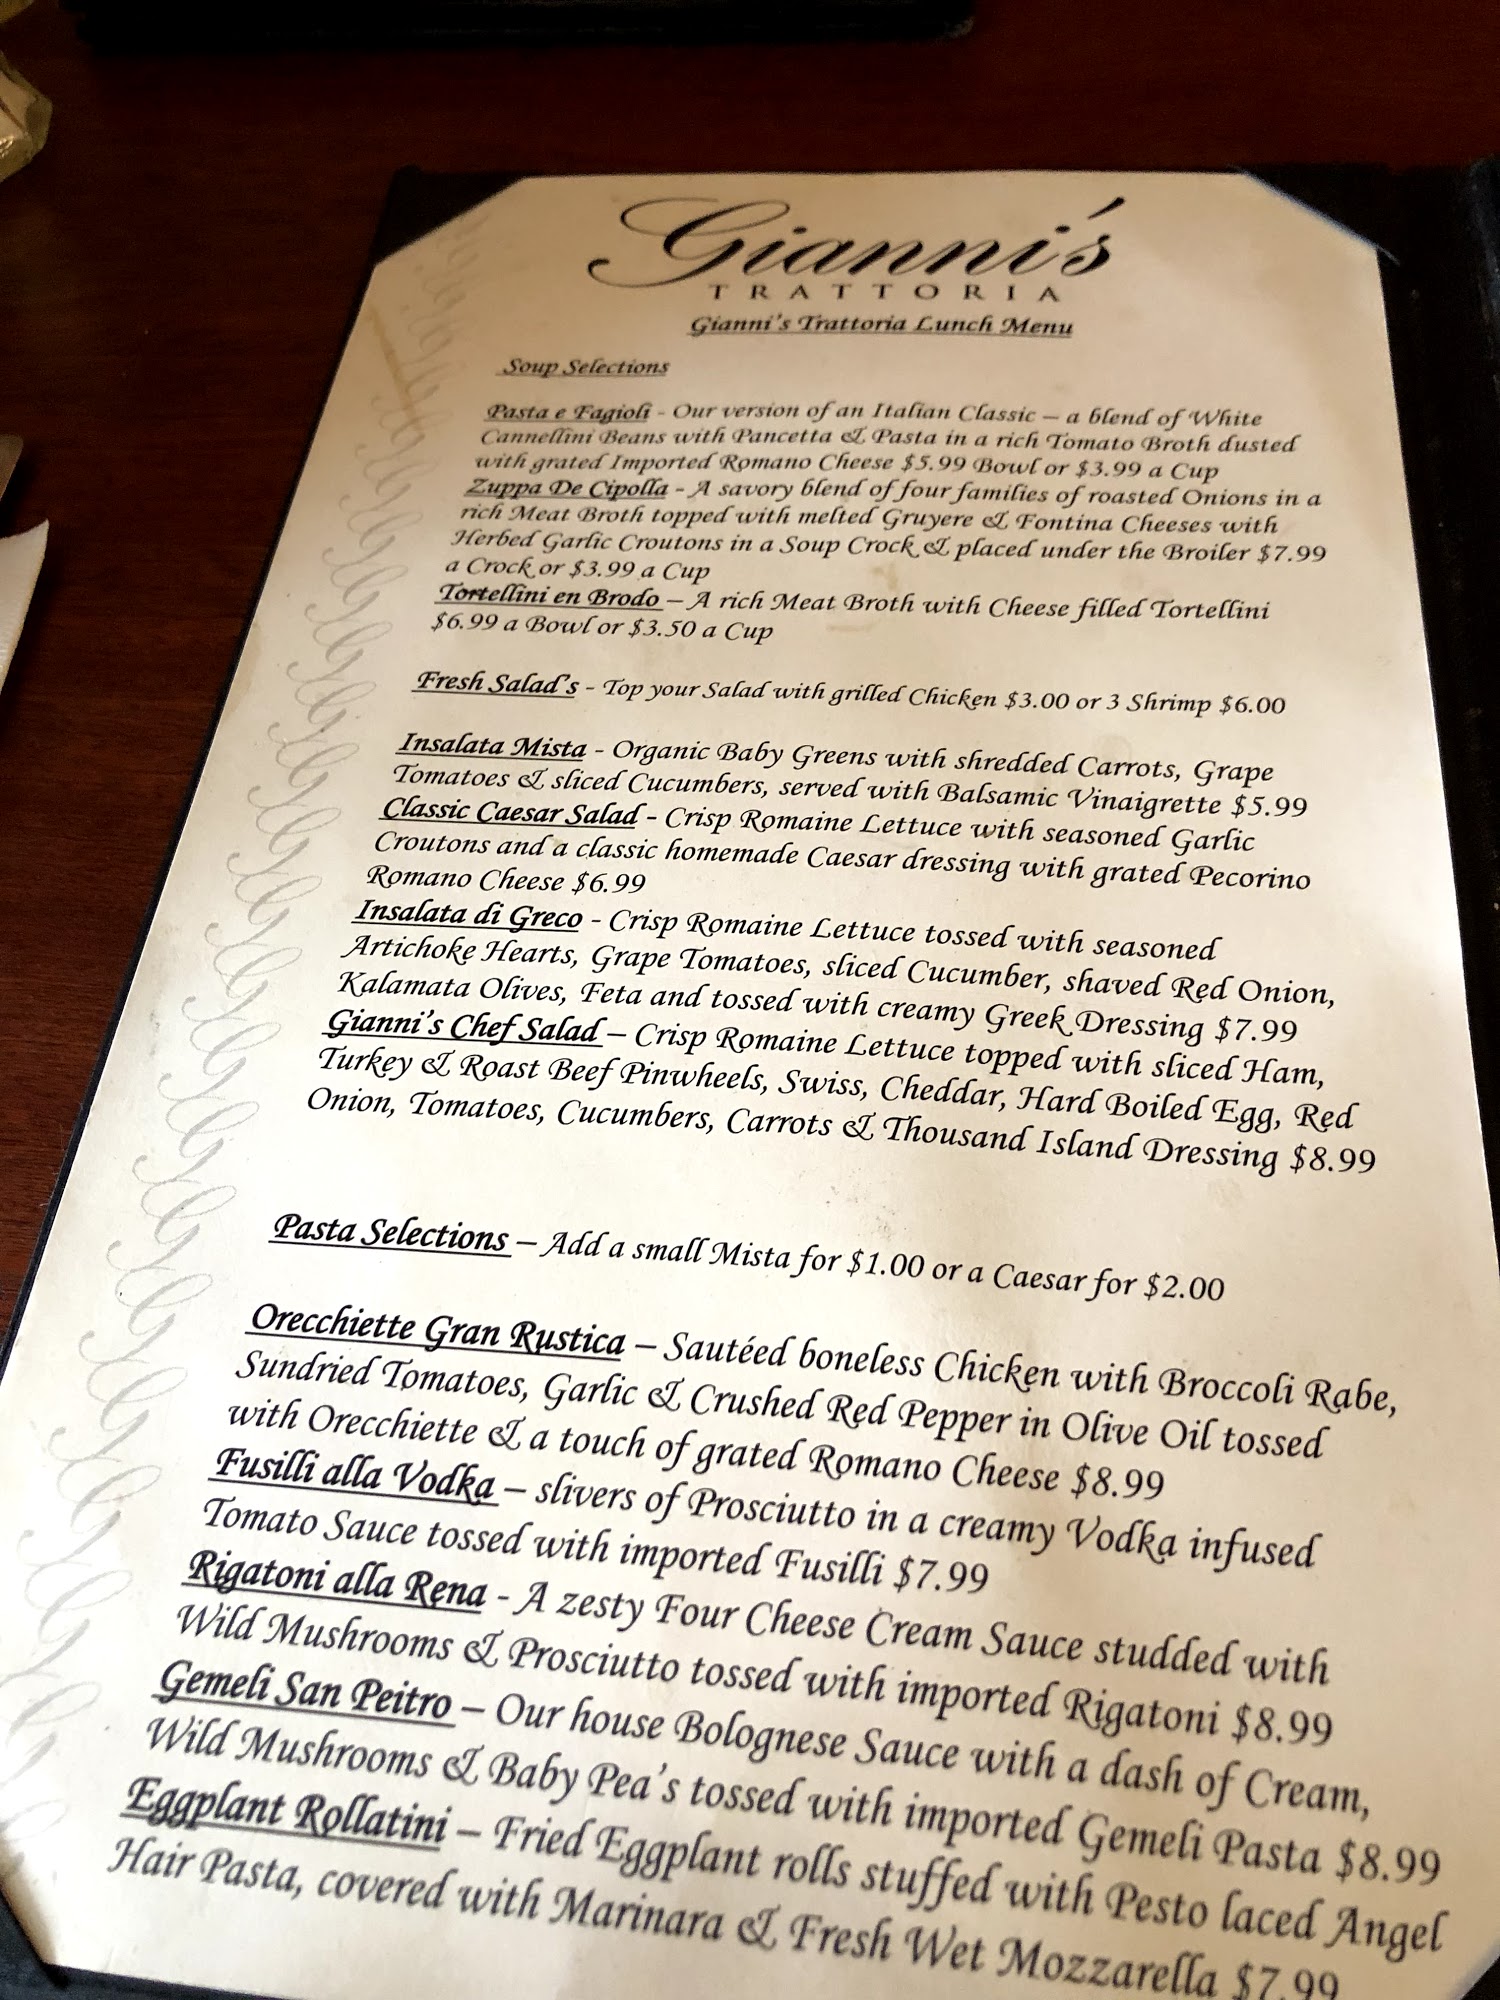 Gianni's
TRATTORIA
Gianni's Trattoria Lunch Menu
Soup Selections
Pasta e Fagioli - Our version of an Italian Classic – a blend of White
Cannellini Beans with Pancetta & Pasta in a rich Tomato Broth dusted
with grated Imported Romano Cheese $5.99 Bowl or $3.99 a Cup
Zuppa De Cipolla - A savory blend of four families of roasted Onions in a
rich Meat Broth topped with melted Gruyere & Fontina Cheeses with
Herbed Garlic Croutons in a Soup Crock & placed under the Broiler $7.99
a Crock or $3.99 a Cup
Tortellini en Brodo – A rich Meat Broth with Cheese filled Tortellini
$6.99 a Bowl or $3.50 a Cup
Fresh Salad's - Top your Salad with grilled Chicken $3.00 or 3 Shrimp $6.00
Insalata Mista - Organic Baby Greens with shredded Carrots, Grape
Tomatoes & sliced Cucumbers, served with Balsamic Vinaigrette $5.99
Classic Caesar Salad - Crisp Romaine Lettuce with seasoned Garlic
Croutons and a classic homemade Caesar dressing with grated Pecorino
Romano Cheese $6.99
Insalata di Greco - Crisp Romaine Lettuce tossed with seasoned
Artichoke Hearts, Grape Tomatoes, sliced Cucumber, shaved Red Onion,
Kalamata Olives, Feta and tossed with creamy Greek Dressing $7.99
Gianni's Chef Salad – Crisp Romaine Lettuce topped with sliced Ham,
Turkey & Roast Beef Pinwheels, Swiss, Cheddar, Hard Boiled Egg, Red
Onion, Tomatoes, Cucumbers, Carrots & Thousand Island Dressing $8.99
Pasta Selections – Add a small Mista for $1.00 or a Caesar for $2.00
Orecchiette Gran Rustica – Sautéed boneless Chicken with Broccoli Rabe,
Sundried Tomatoes, Garlic & Crushed Red Pepper in Olive Oil tossed
with Orecchiette & a touch of grated Romano Cheese $8.99
Fusilli alla Vodka – slivers of Prosciutto in a creamy Vodka infused
Tomato Sauce tossed with imported Fusilli $7.99
Rigatoni alla Rena - A zesty Four Cheese Cream Sauce studded with
Wild Mushrooms & Prosciutto tossed with imported Rigatoni $8.99
Gemeli San Peitro – Our house Bolognese Sauce with a dash of Cream,
Wild Mushrooms & Baby Pea's tossed with imported Gemeli Pasta $8.99
Eggplant Rollatini – Fried Eggplant rolls stuffed with Pesto laced Angel
Hair Pasta, covered with Marinara & Fresh Wet Mozzarella $7.99